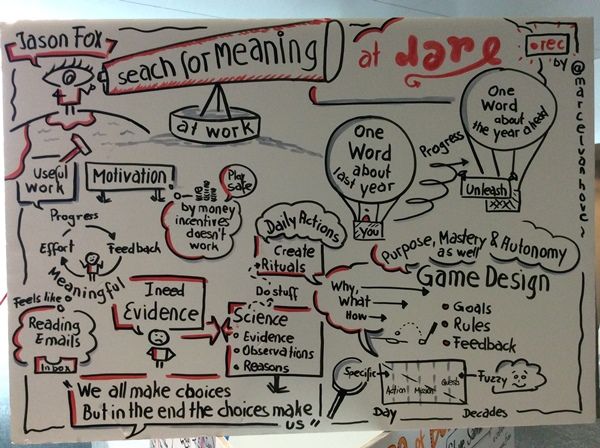 Jason Fox
seach for Meaning
at work
at dare
rec
by
@marcelvanhove
Useful
Work
Motivation
Play
safe
by money
incentives
doesn't
work
Progress
Effort
Feedback
Meaningful
Feels like
Reading
Emails
Inbox
I need
Evidence
Daily Actions
Create
Rituals
Do stuff
Science
Evidence
Observations
Reasons
We all make choices
But in the end the choices make
us"
One
Word
about
last year
You
Progress
One
Word
about
the year ahead
Unleash
Purpose, Mastery & Autonomy
as well
Game Design
Why,
What
How
Goals
Rules
Feedback
Specific
Action
Mission
Quests
Fuzzy
Day
Decades